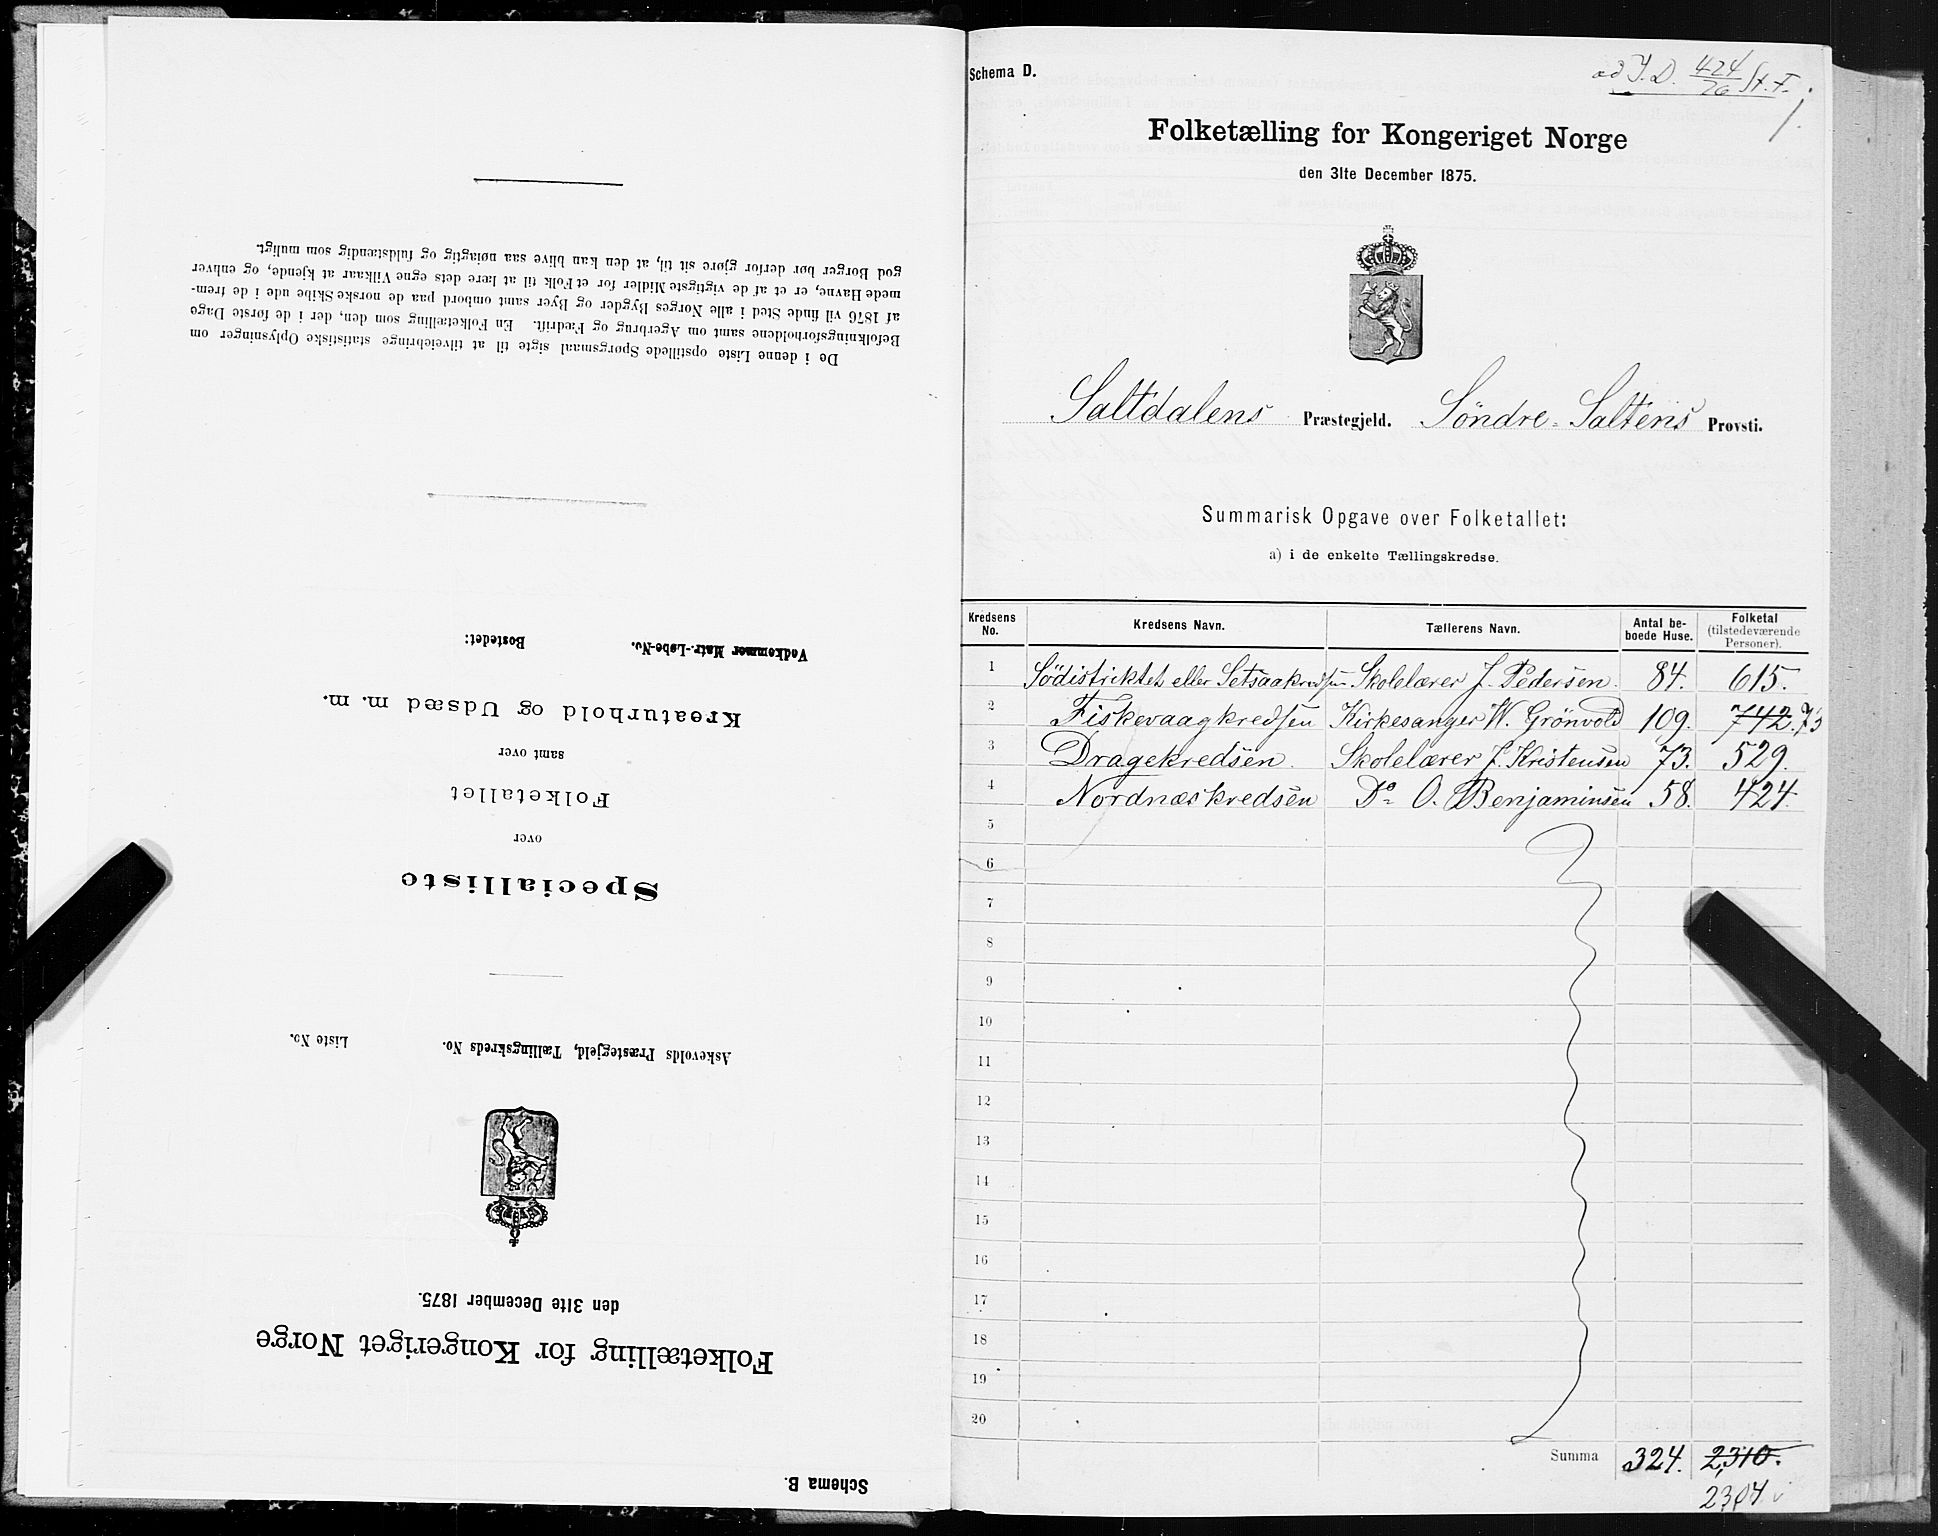 Schema B.
Folketælling for Kongeriget Norge
den 31te December 1875.
Askevolds Præstegjeld, Tællingskreds No. Liste No.
Specialliste
over
Folketallet
samt over
Kreaturhold og Udsæd m. m.
Vedkommer Matr.-Løbe-No. Bostedet:
De i denne Liste opstillede Spørgsmaal sigte til at tilveiebringe statistiske Oplysninger om
Befolkningsforholdene samt om Agerbrug og Fædrift. En Folketælling som den, der i de første Dage
af 1876 vil finde Sted i alle Norges Bygder og Byer samt ombord paa de norske Skibe ude i de frem-
mede Havne, er et af de vigtigste Midler for et Folk til at lære dets egne Vilkaar at kjende, og enhver
god Borger bør derfor gjøre sit til, at den kan blive saa nøiagtig og fuldstændig som muligt.
Schema D.
ad J. D. 424/76 St. F.
1.
Folketælling for Kongeriget Norge
den 31te December 1875.
Saltdalens Præstegjeld. Söndre-Saltens Provsti.
Summarisk Opgave over Folketallet:
a) i de enkelte Tællingskredse.
Kredsens No. Kredsens Navn. Tællerens Navn. Antal be-boede Huse. Folketal (tilstedeværende Personer).
1 Södistriktet eller Setsaakredsen Skolelærer J. Pedersen. 84. 615.
2 Fiskevaagkredsen Kirkesanger W. Grönvold 109. 742. 73
3 Dragekredsen. Skolelærer J. Kristensen 73. 529.
4 Nordnæskredsen Do O. Benjaminsen 58. 424.
5
6
7
8
9
10
11
12
13
14
15
16
17
18
19
20
Summa 324. 2,310.
2304